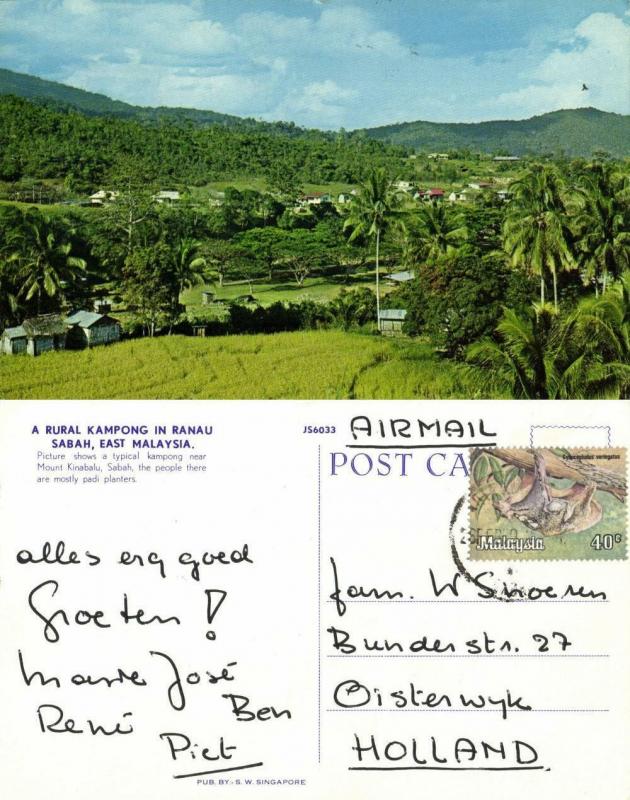 A RURAL KAMPONG IN RANAU
SABAH, EAST MALAYSIA.
Picture shows a typical kampong near
Mount Kinabalu, Sabah, the people there
are mostly padi planters.
alles erg goed
Groeten!
Marie José
René Ben
Piet
PUB. BY:- S. W. SINGAPORE
JS6033
AIRMAIL
POST CA
Cynocephalus variegatus
Malaysia 40¢
fam. W Snoeren
Bunderstr. 27
Oisterwyk
HOLLAND